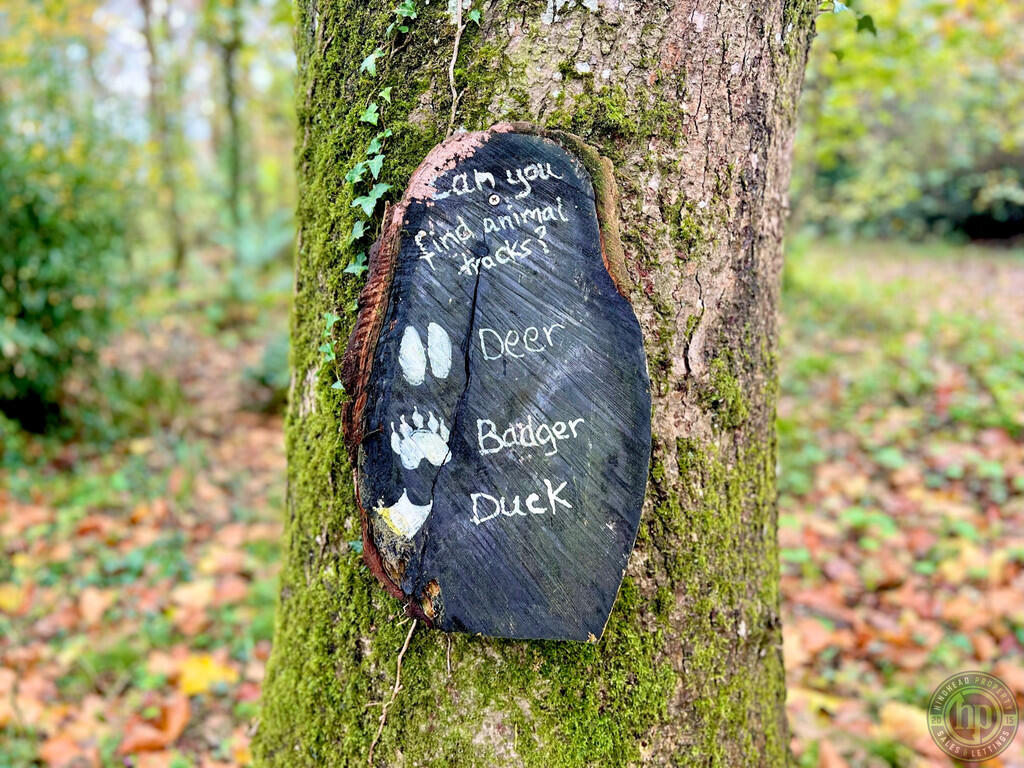 Can you
find animal
tracks?
Deer
Badger
Duck
HINDHEAD PROPERTY
20 15
hp
SALES & LETTINGS